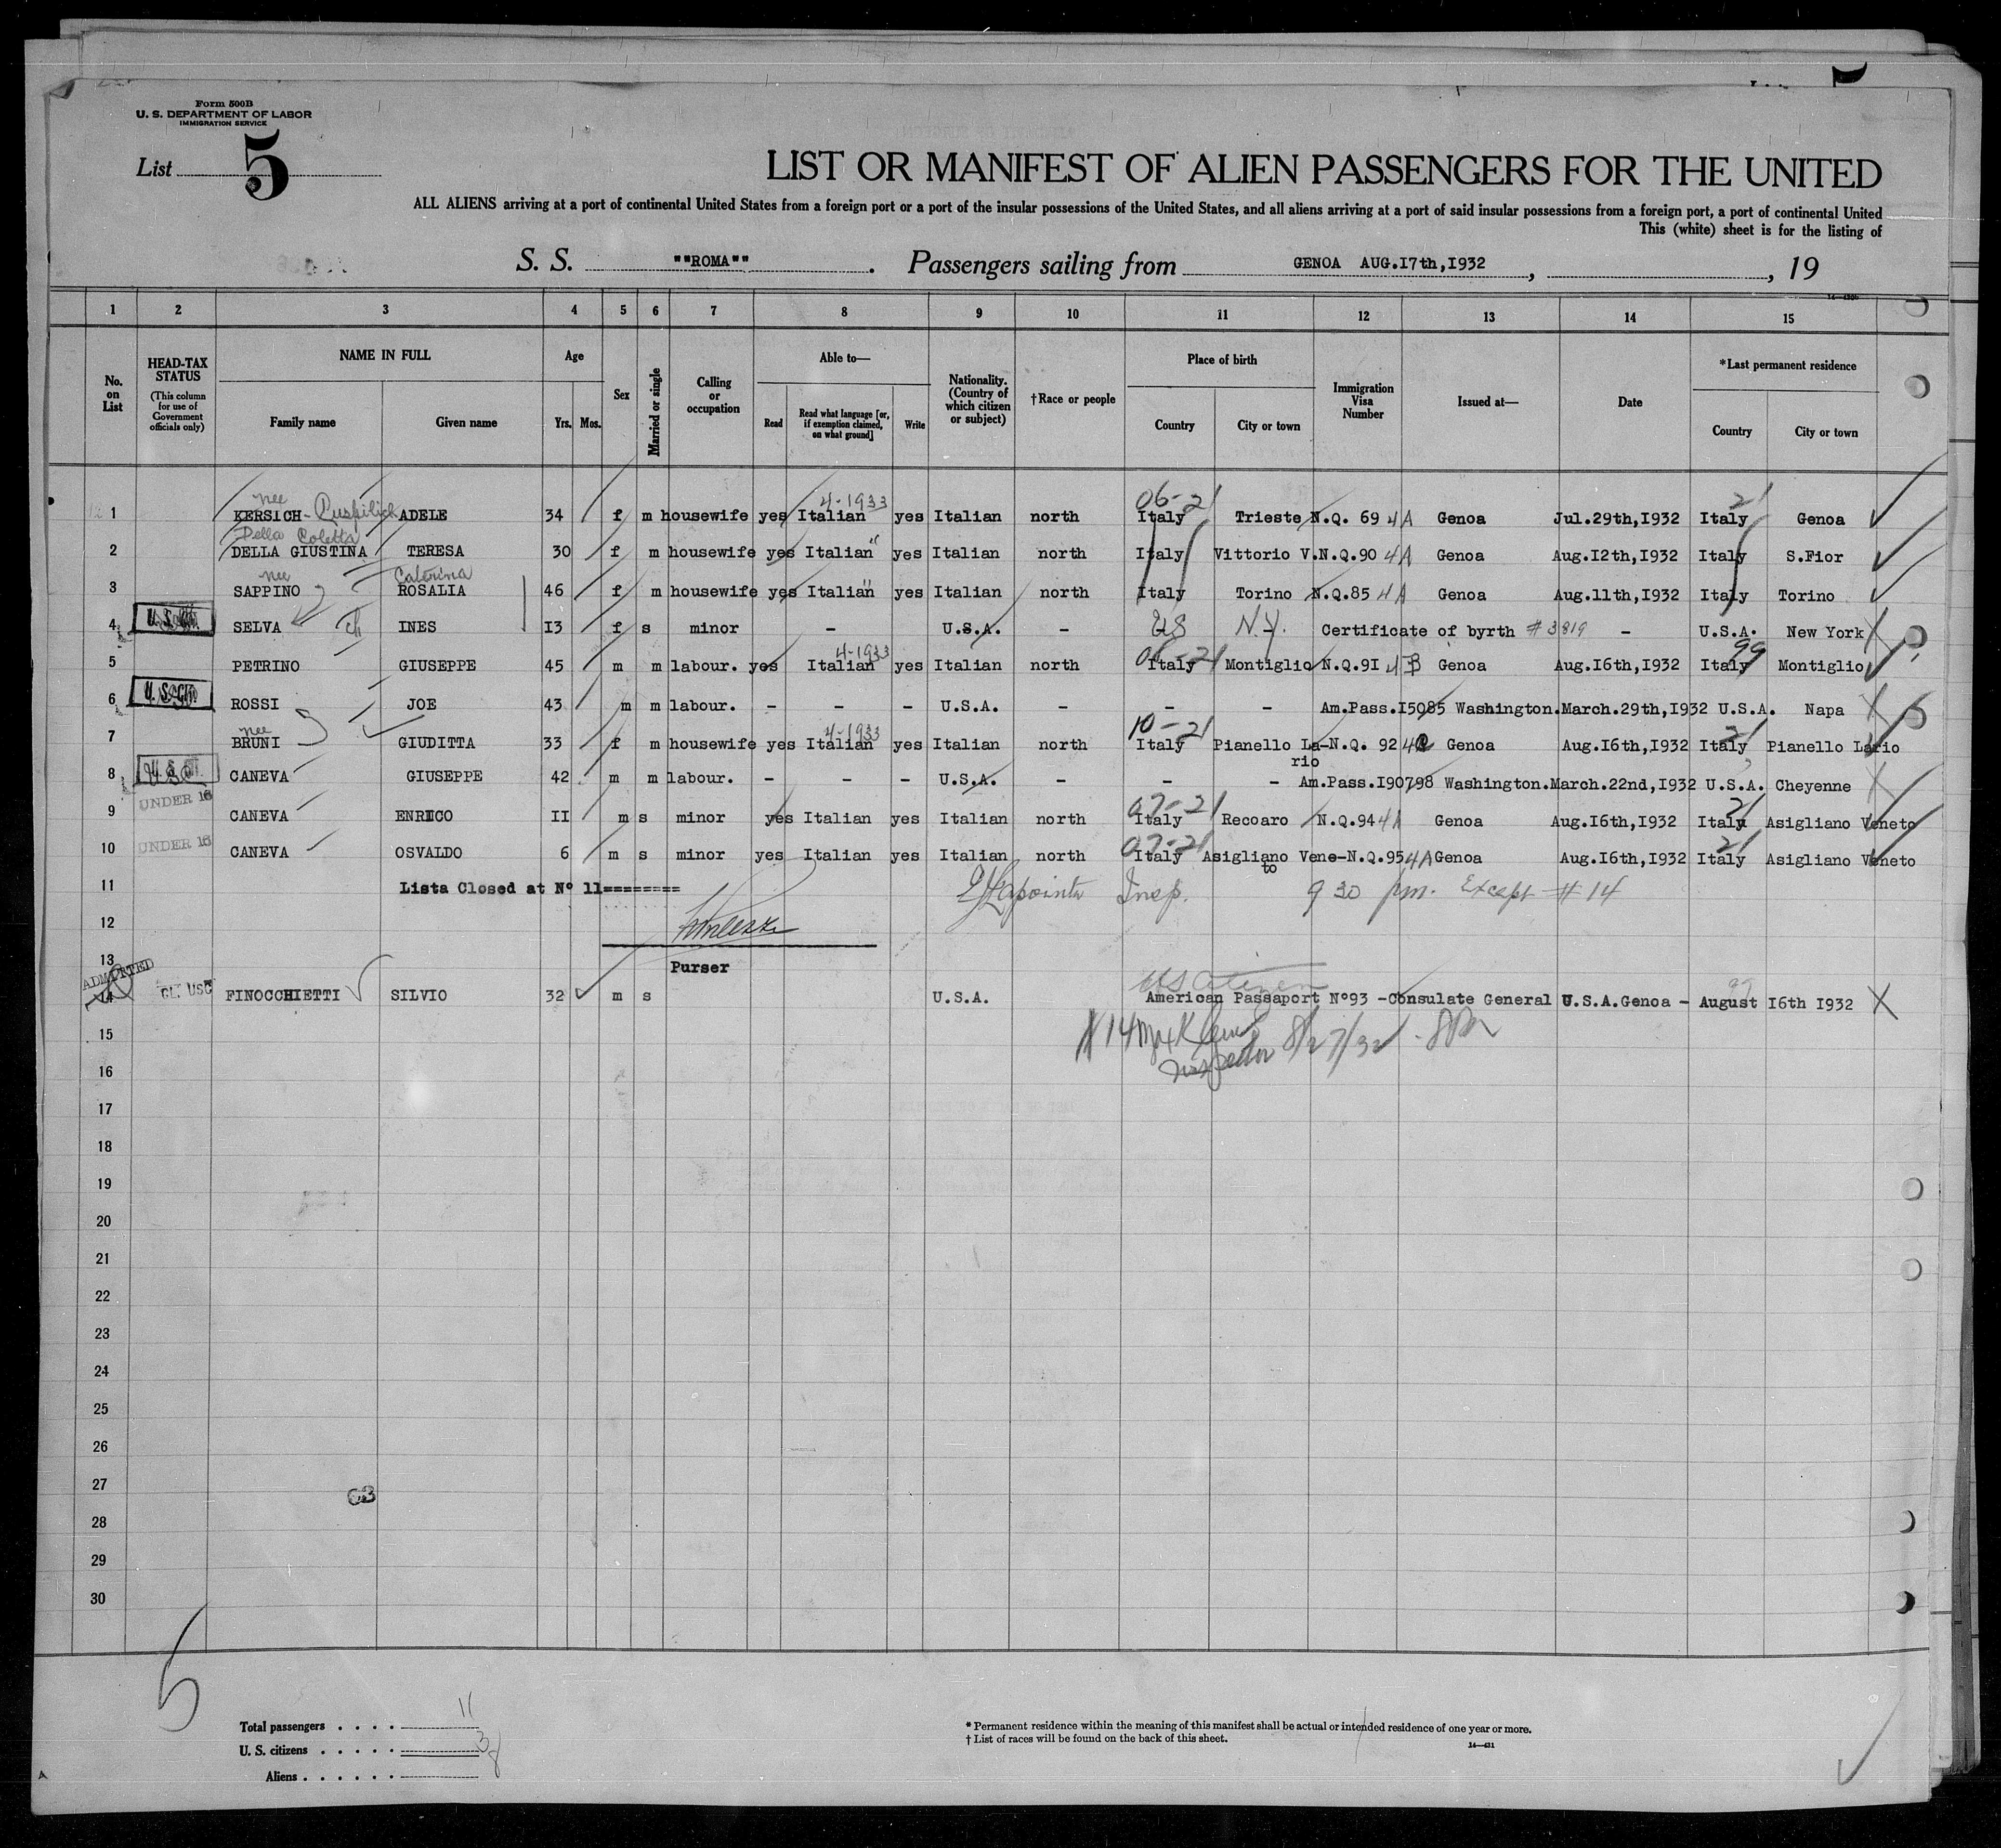 Form 500B
U. S. DEPARTMENT OF LABOR
IMMIGRATION SERVICE
List 5
LIST OR MANIFEST OF ALIEN PASSENGERS FOR THE UNITED
ALL ALIENS arriving at a port of continental United States from a foreign port or a port of the insular possessions of the United States, and all aliens arriving at a port of said insular possessions from a foreign port, a port of continental United
This (white) sheet is for the listing of
S. S. ""ROMA"" . Passengers sailing from GENOA AUG.I7th,I932 , , 19
1 2 3 4 5 6 7 8 9 10 11 12 13 14 15
No. on List
HEAD-TAX STATUS (This column for use of Government officials only)
NAME IN FULL
Family name Given name
Age
Yrs. Mos.
Sex
Married or single
Calling or occupation
Able to—
Read Read what language [or, if exemption claimed, on what ground] Write
Nationality. (Country of which citizen or subject)
†Race or people
Place of birth
Country City or town
Immigration Visa Number
Issued at—
Date
*Last permanent residence
Country City or town
nee 4-1933 06-21 21
1 KERSICH ADELE 34 f m housewife yes Italian yes Italian north Italy Trieste N.Q. 69 4A Genoa Jul.29th,I932 Italy Genoa
Della Coletta
2 DELLA GIUSTINA TERESA 30 f m housewife yes Italian " yes Italian north Italy Vittorio V. N.Q.90 4A Genoa Aug.I2th,I932 Italy S.Fior
nee Caterina
3 SAPPINO ROSALIA 46 f m housewife yes Italian " yes Italian north Italy Torino N.Q.85 4A Genoa Aug.11th,I932 Italy Torino
4 SELVA ch INES I3 f s minor - U.S.A. - US N.Y. Certificate of byrth # 3819 - U.S.A. New York
4-1933 99
5 PETRINO GIUSEPPE 45 m m labour. yes Italian yes Italian north Italy Montiglio N.Q.9I 4B Genoa Aug.I6th,I932 Italy Montiglio
6 ROSSI JOE 43 m m labour. - - - U.S.A. - - - Am.Pass.I5085 Washington.March.29th,I932 U.S.A. Napa
nee 4-1933 10-21 21
7 BRUNI GIUDITTA 33 f m housewife yes Italian yes Italian north Italy Pianello La- N.Q. 92 Genoa Aug.I6th,I932 Italy Pianello Lario
rio
8 CANEVA GIUSEPPE 42 m m labour. - - - U.S.A. - - - Am.Pass.I90798 Washington.March.22nd,I932 U.S.A. Cheyenne
UNDER 16 07-21 21
9 CANEVA ENRICO II m s minor yes Italian yes Italian north Italy Recoaro N.Q.94 4A Genoa Aug.I6th,I932 Italy Asigliano Veneto
UNDER 16 07-21 21
10 CANEVA OSVALDO 6 m s minor yes Italian yes Italian north Italy Asigliano Vene- N.Q.95 4A Genoa Aug.I6th,I932 Italy Asigliano Veneto
to
11 Lista Closed at N° 11======== Insp. 9 30 pm. Except # 14
12
13 Purser
ADMITTED US Citizen
14 USC FINOCCHIETTI SILVIO 32 m s U.S.A. American Passaport N°93 -Consulate General U.S.A.Genoa - August I6th I932
15 # 14 8/27/32
16 Inspector
17
18
19
20
21
22
23
24
25
26
27
63
28
29
30
5
Total passengers . . . . 11
U. S. citizens . . . . . 3
Aliens . . . . . . 8
* Permanent residence within the meaning of this manifest shall be actual or intended residence of one year or more.
† List of races will be found on the back of this sheet.
14—431